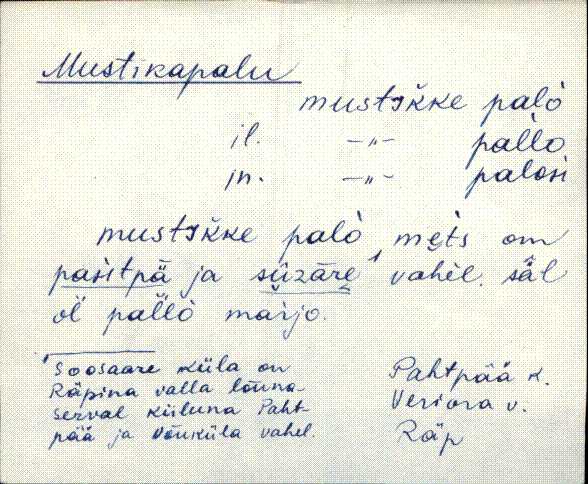 Mustikapalu
mustikke palò
il. —„— pallo
in. —„— palosi
mustikke palò mets om
pasitpä ja süzäre¹ vahel. säl
öl pallò marjo.
¹ Soosaare küla on
Räpina valla lõuna-
serval küluna Paht-
pää ja Võuküla vahel.
Pahtpää k.
Veriora v.
Räp